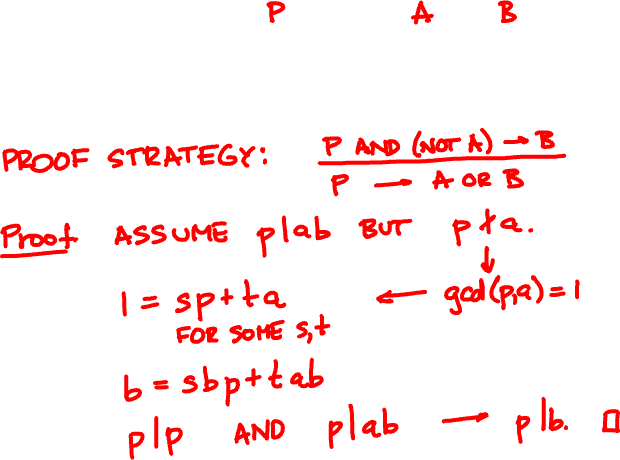 P A B
PROOF STRATEGY: P AND (NOT A) → B
P → A OR B
Proof ASSUME p|ab BUT p∤a.
↓
1 = sp + ta ← gcd(p,a) = 1
FOR SOME s,t
b = sbp + tab
p|p AND p|ab → p|b. □